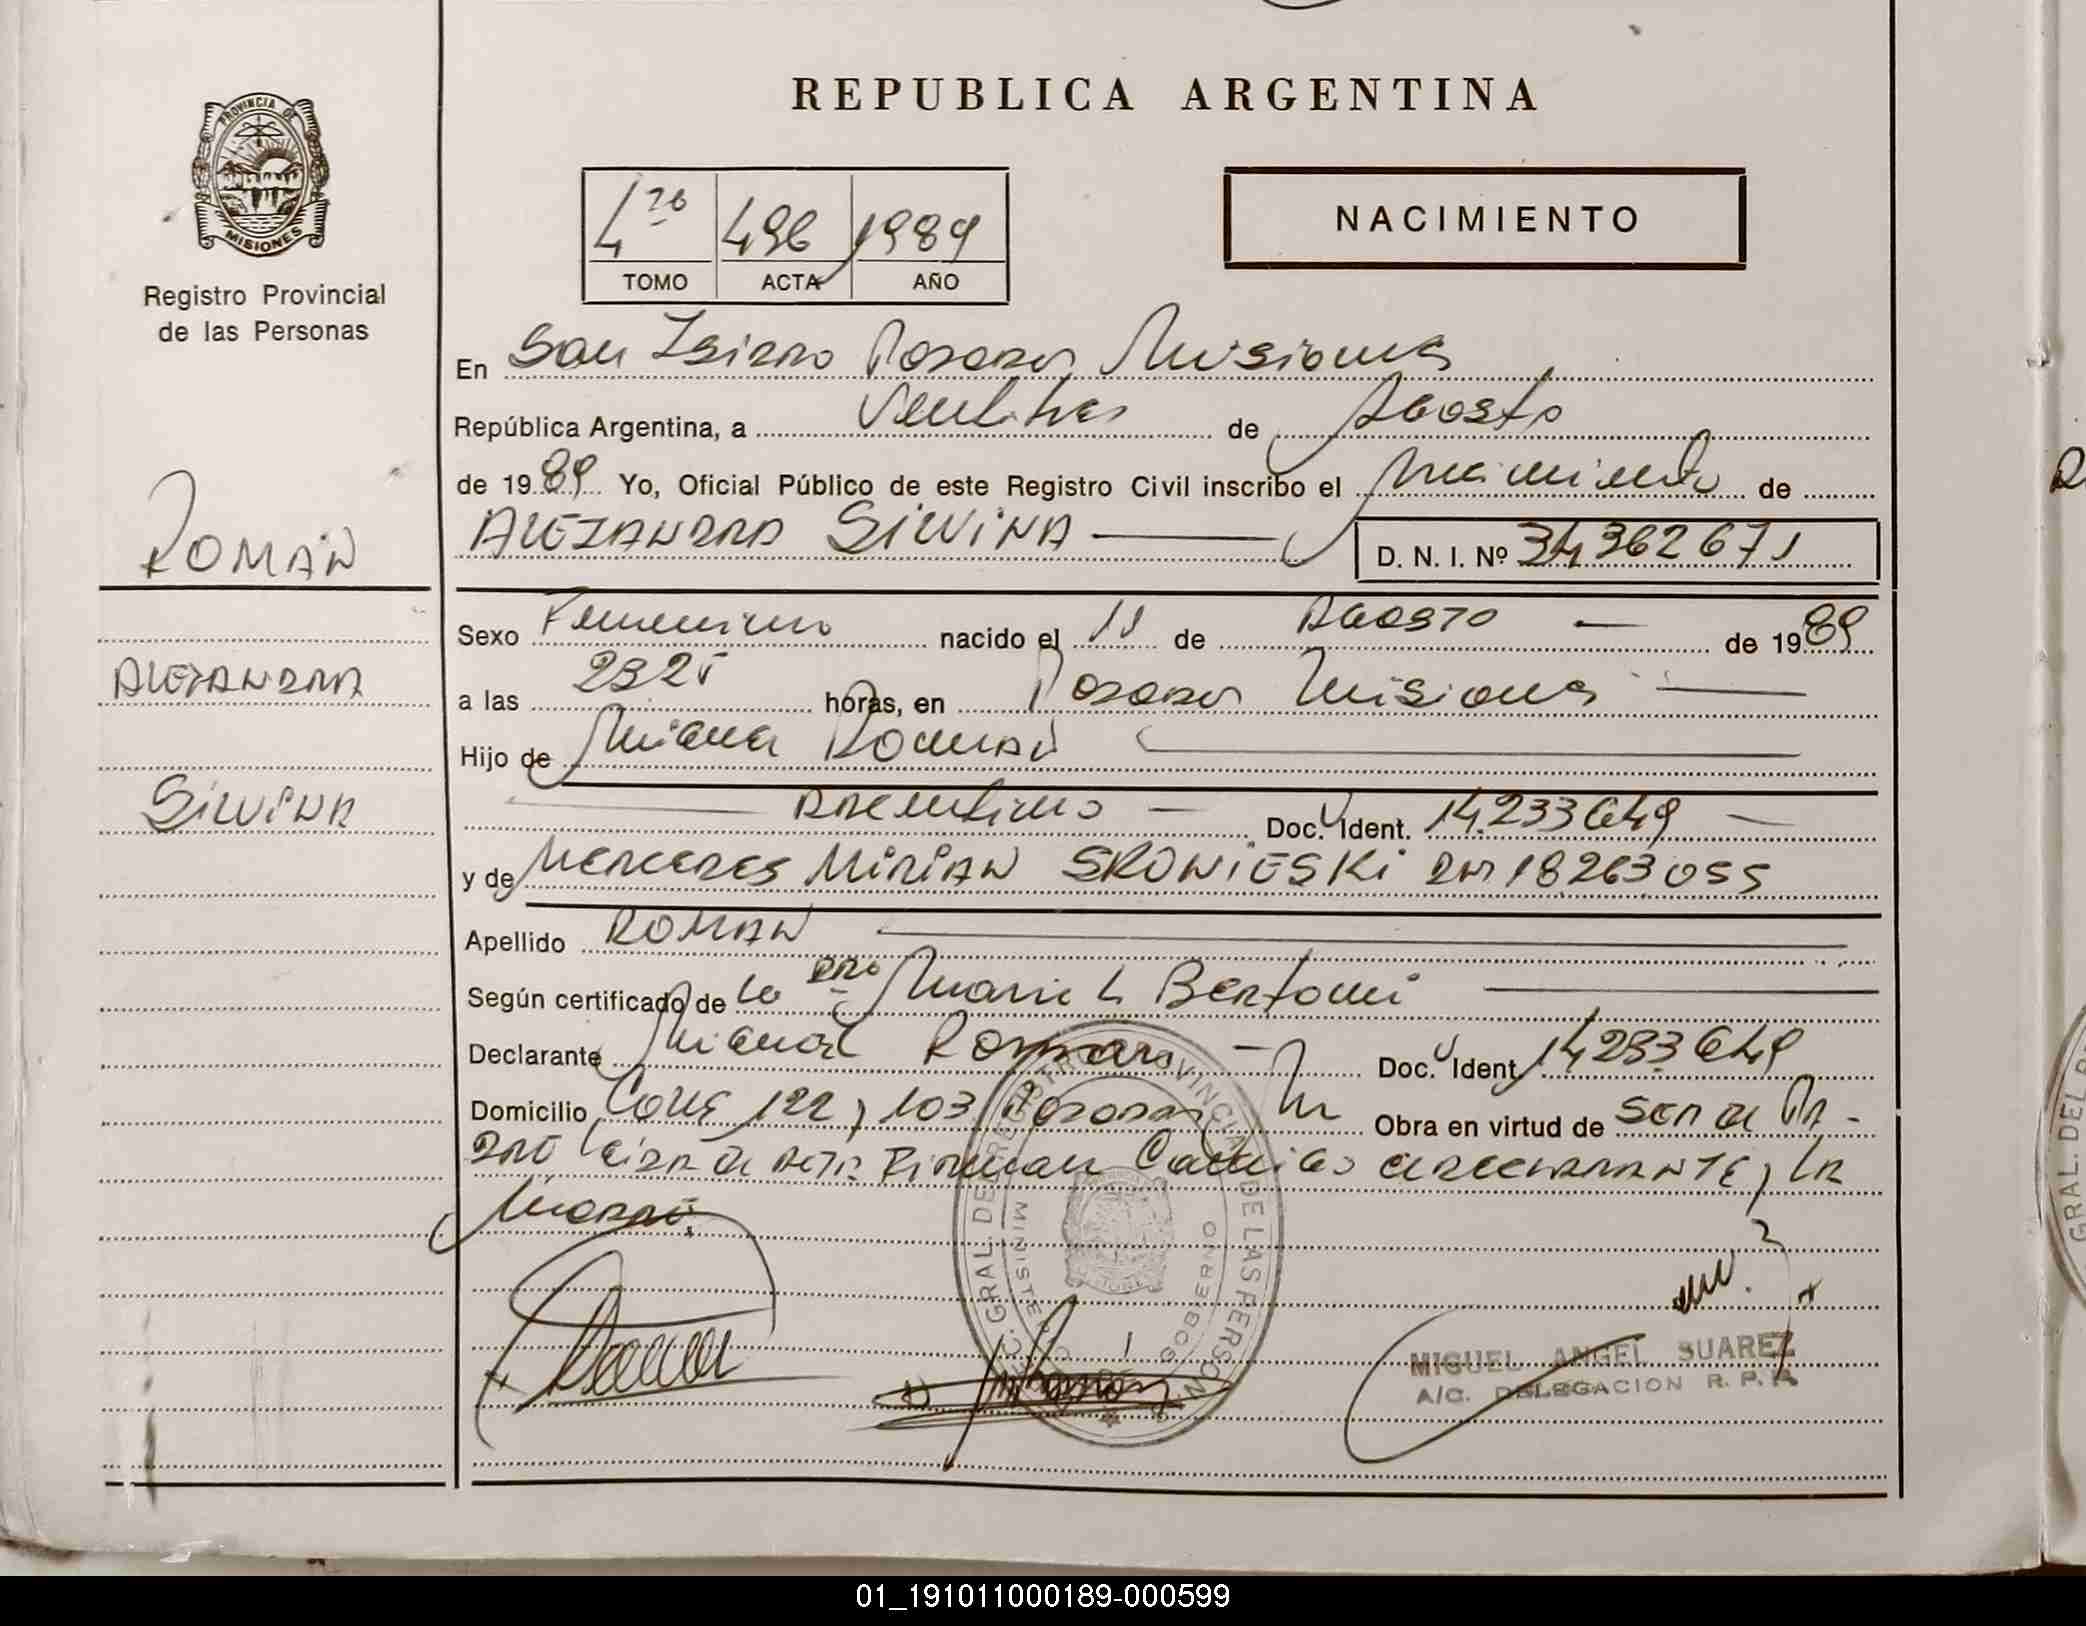 REPUBLICA ARGENTINA
PROVINCIA DE
MISIONES
Registro Provincial
de las Personas
4to 496 1989
TOMO ACTA AÑO
NACIMIENTO
En San Isidro Posadas Misiones
República Argentina, a Veintitres de Agosto
de 1989 Yo, Oficial Público de este Registro Civil inscribo el nacimiento de
ALEJANDRA SILVINA
D. N. I. Nº 34362671
ROMAN
ALEJANDRA
SILVINA
Sexo Femenino nacido el 11 de Agosto de 1989
a las 2325 horas, en Posadas Misiones
Hijo de Miguel Roman
Argentino Doc. Ident. 14.233649
y de MERCEDES MIRIAN SKOWIESKI DNI 18263055
Apellido ROMAN
Según certificado de la Dra Maria L Bertoni
Declarante Miguel Roman Doc. Ident. 14233649
Domicilio Calle 122, 103 Posadas Mi Obra en virtud de ser el Pa-
dre Leida el acta Firman el declarante, la
Madre
MIGUEL ANGEL SUAREZ
A/C. DELEGACION R. P. P.
GRAL. DEL REGISTRO PROVINCIAL DE LAS PERSONAS
GOBIERNO
01_191011000189-000599